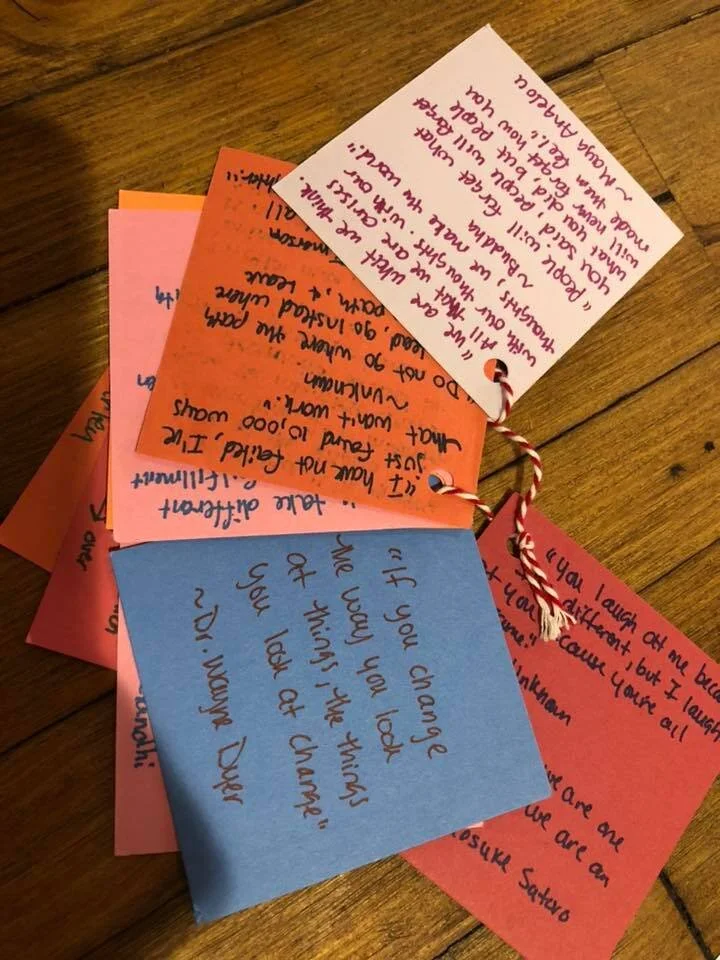 "We are what we think.
All that we are arises
with our thoughts. with our
thoughts, we make the world."
~Buddha
"People will forget what
you said, people will forget
what you did, but people
will never forget how you
made them feel."
~Maya Angelou
"I have not failed, I've
just found 10,000 ways
that won't work."
~unknown
"Do not go where the path
lead, go instead where
path, & leave
all
take different
fulfillment
"If you change
the way you look
at things, the things
you look at change"
~Dr. Wayne Dyer
"You laugh at me
different, but I laugh
you cause you're all
we are one
we are an
over